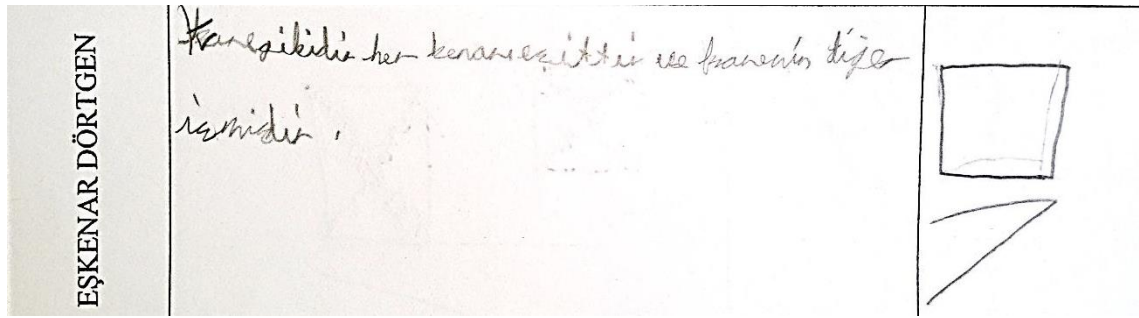 EŞKENAR DÖRTGEN
Kare gibidir her kenarı eşittir ve karenin diğer
ismidir.